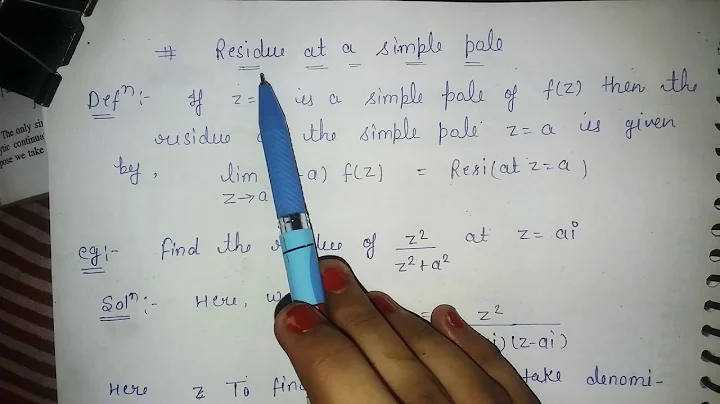 # Residue at a simple pole
Defⁿ:- If z= is a simple pole of f(z) then the
residue the simple pole z = a is given
by, lim a) f(z) = Resi(at z=a)
z→a
eg:- Find the of z² at z= ai
z²+a²
Solⁿ:- Here, = z²
i)(z-ai)
Here z To take denomi-
The only sin
tic continua
pose we take